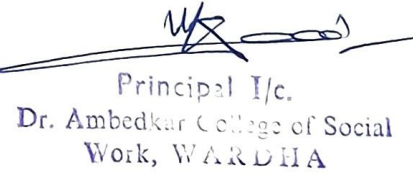 Principal I/c.
Dr. Ambedkar College of Social
Work, WARDHA